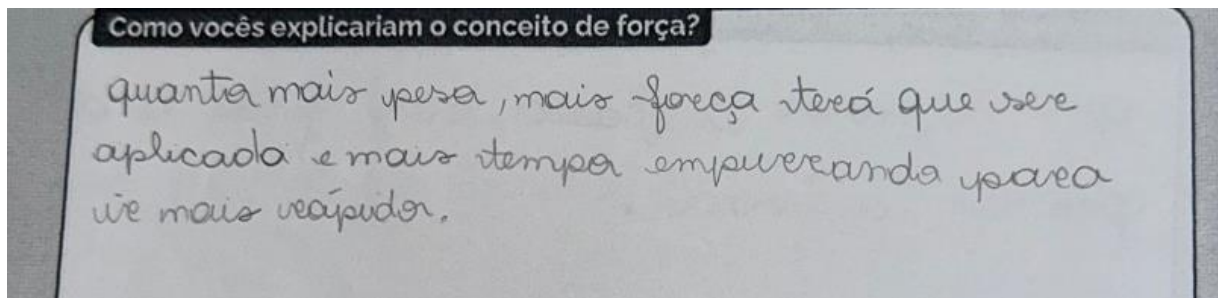 Como vocês explicariam o conceito de força?
quanto mais peso, mais força terá que ser
aplicada e mais tempo empurrando para
ir mais rápido.